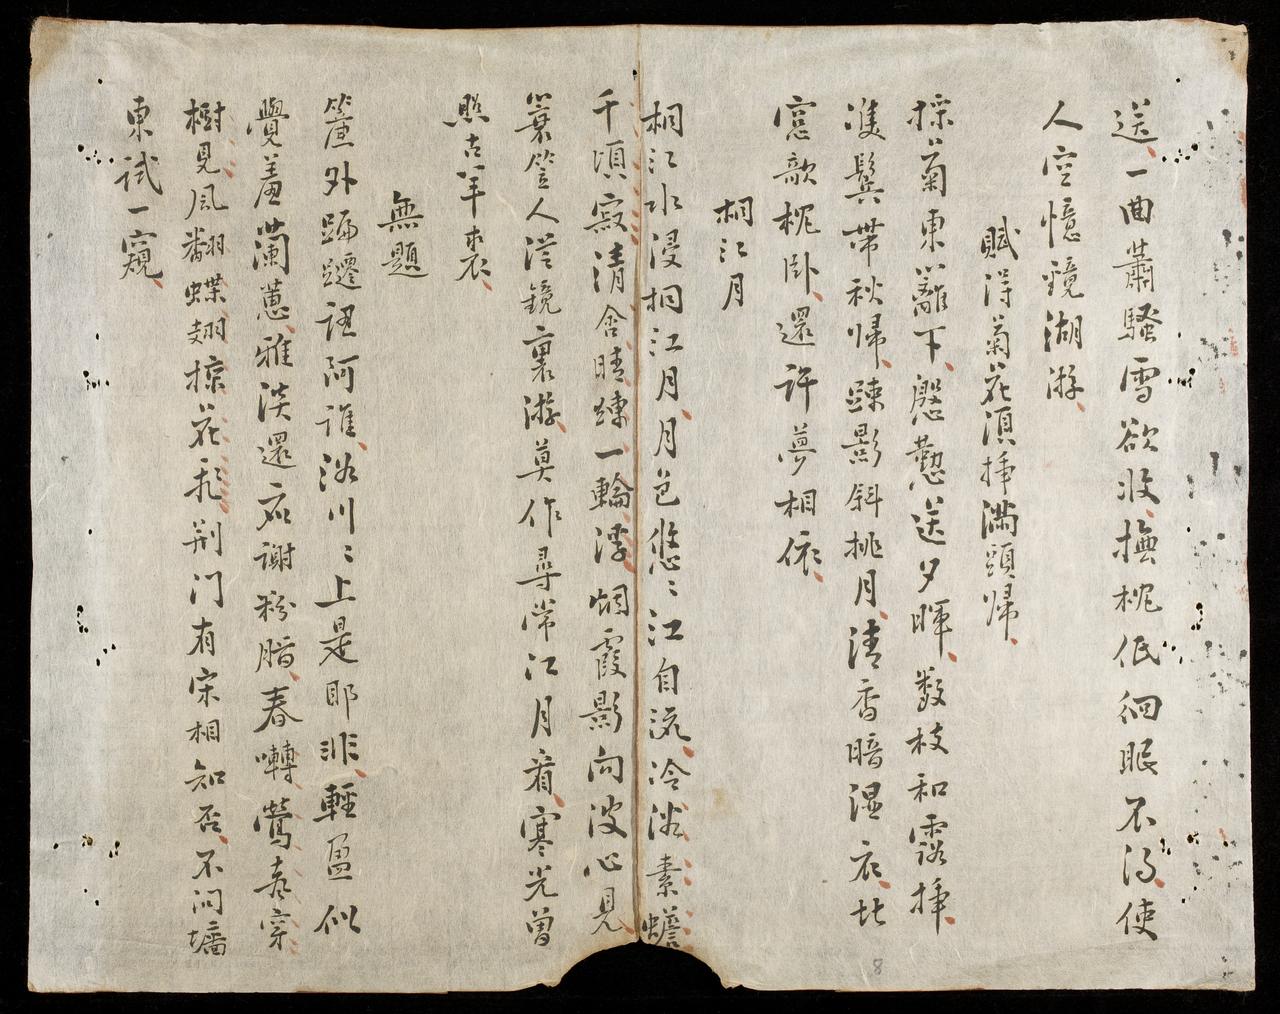 送一曲蕭騷雪欲收撫枕低徊眠不得使
人空憶鏡湖游
賦得菊花須插滿頭歸
採菊東籬下慇懃送夕暉數枝和露插
雙鬢帶秋歸疎影斜挑月清香暗濕衣北
窓歌枕臥還許夢相依
桐江月
桐江水浸桐江月月色悠〻江自流冷淡素蟾
千頃寂清含晴練一輪浮烟霞影向波心見
簑笠人從鏡裏游莫作尋常江月看寒光曾
照古羊裘
無題
簾外蹁躚認阿誰洛川〻上是耶非輕盈似
覺羞蘭蕙雅淡還應謝粉脂春囀鶯聲穿
樹見風翻蝶翅掠花飛荊門有宋相知否不问墻
東試一窺
8